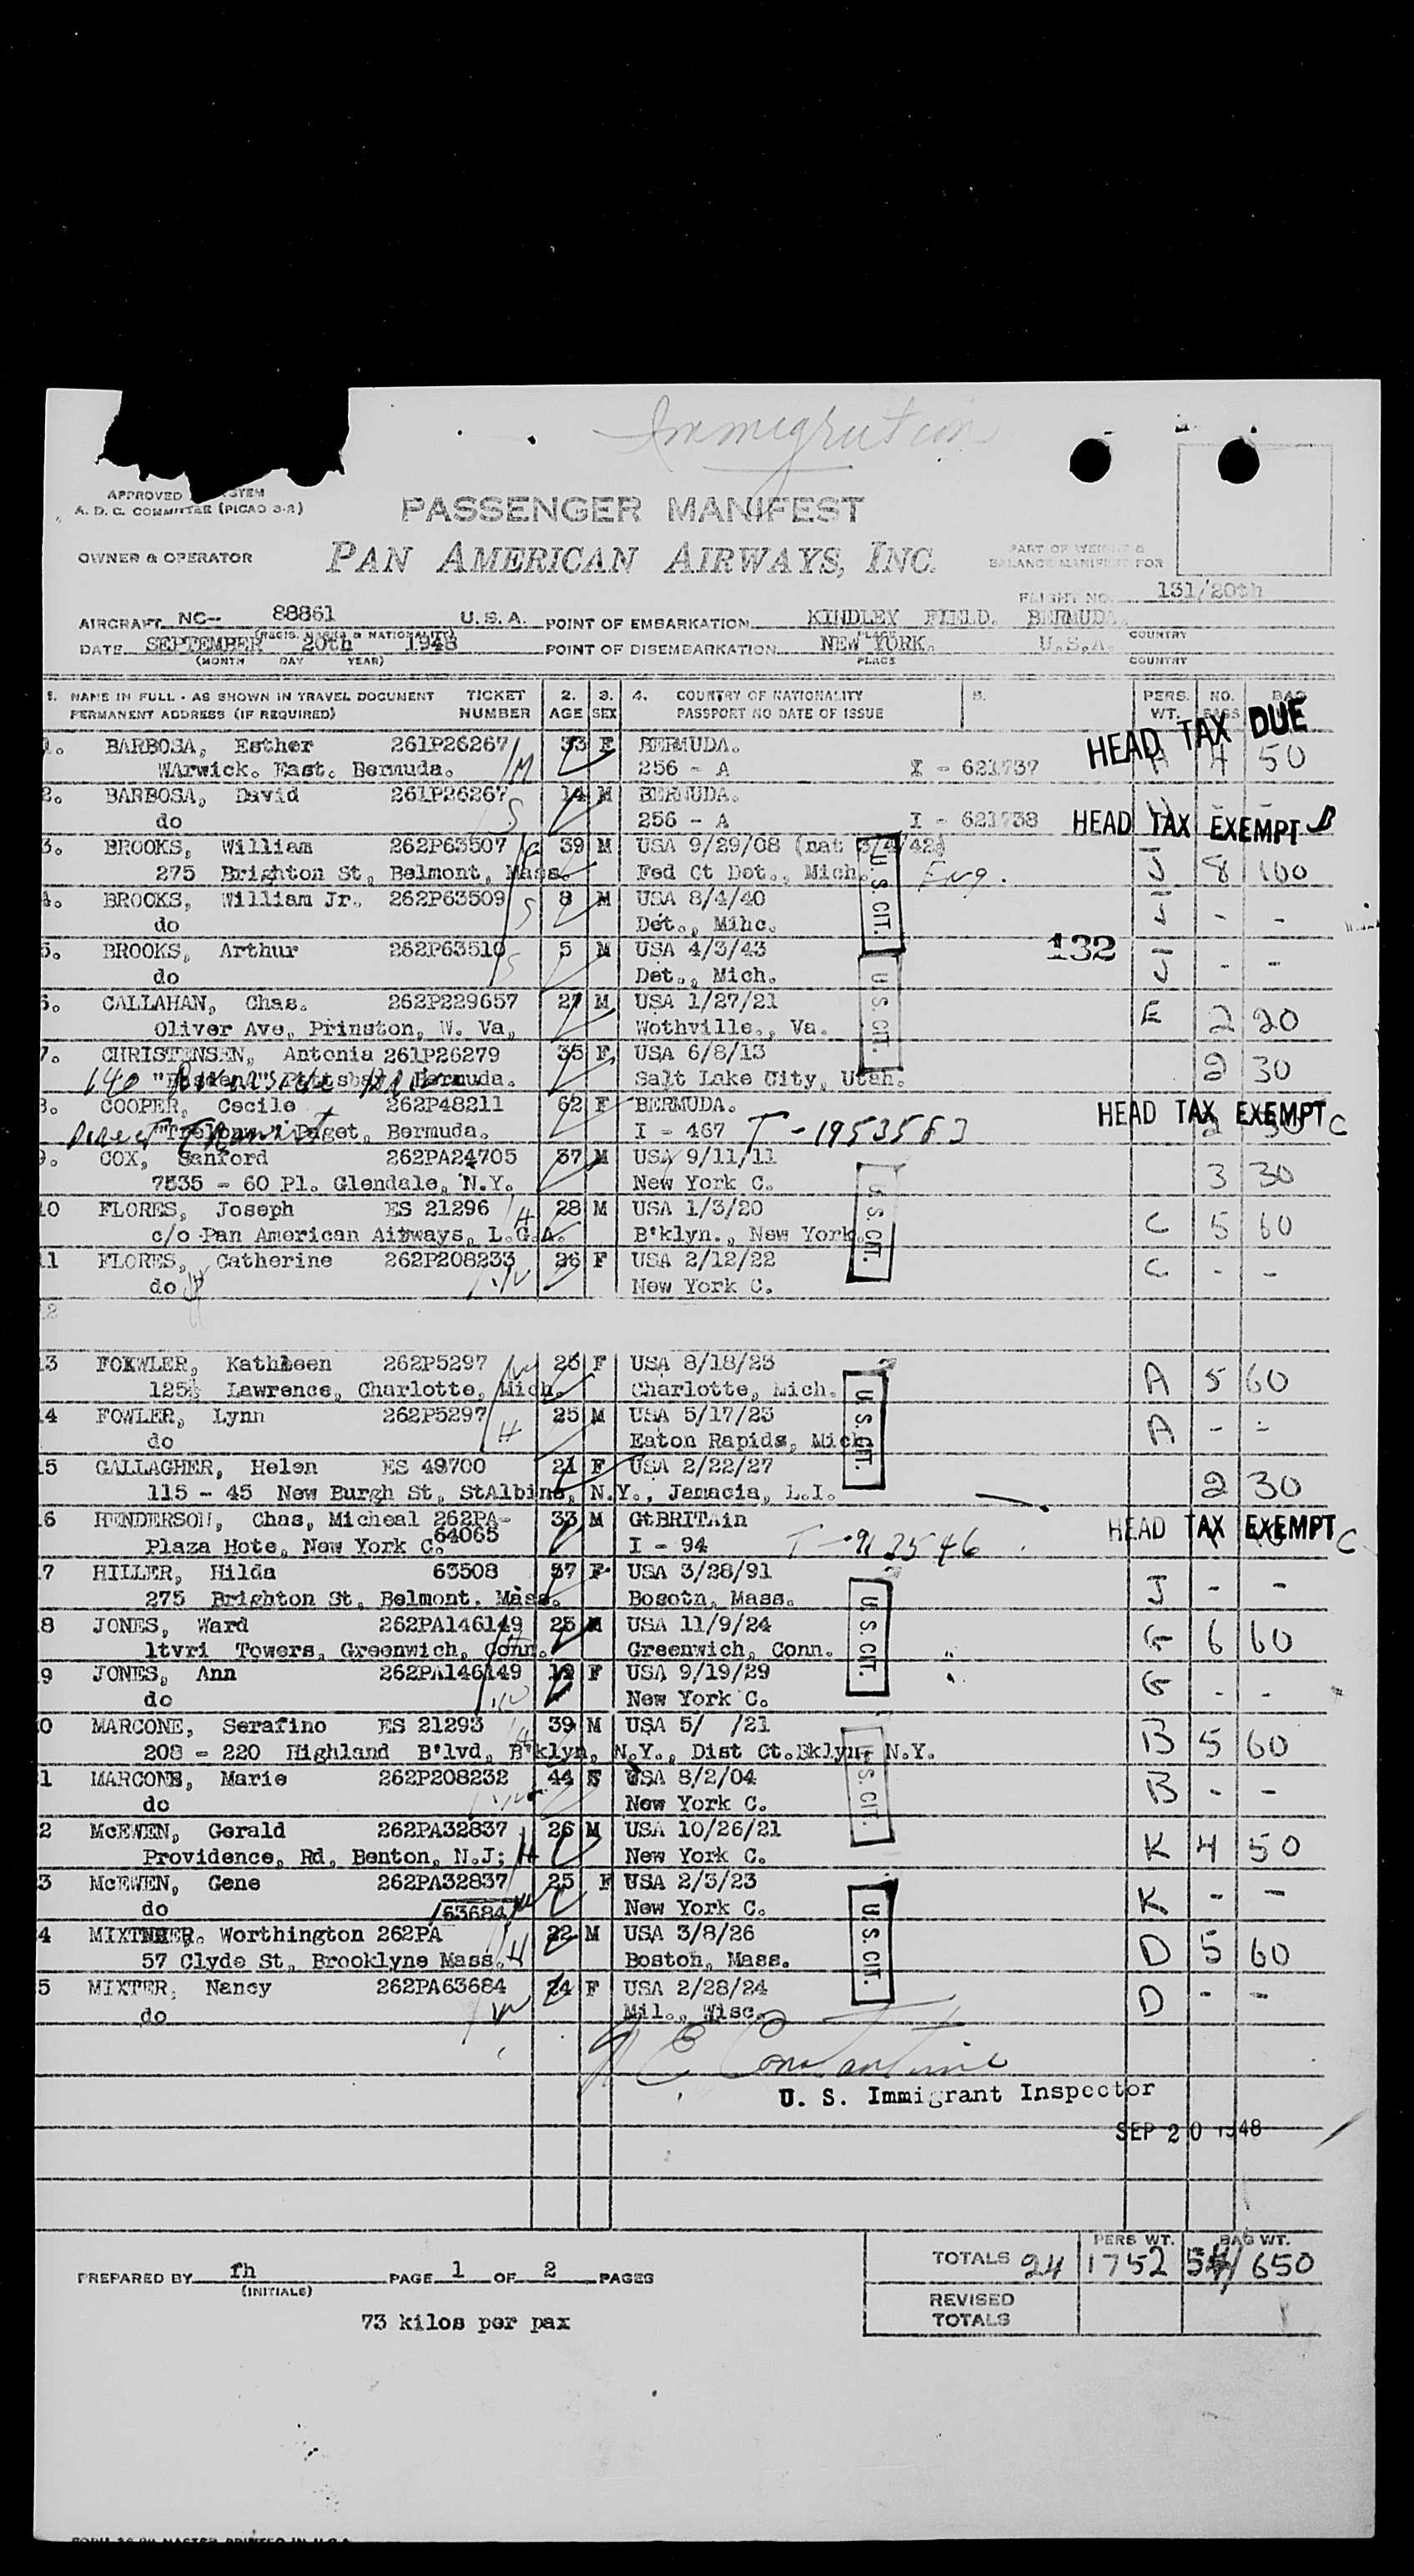 Immigration
APPROVED STEM
A. D. C. COMMITTEE (PICAO 3-R)
PASSENGER MANIFEST
OWNER & OPERATOR PAN AMERICAN AIRWAYS, INC. PART OF WEIGHT &
BALANCE MANIFEST FOR
FLIGHT NO. 131/20th
AIRCRAFT NC-- 88861 U. S. A. POINT OF EMBARKATION KINDLEY FIELD. BERMUDA.
(REGIS. MARKS & NATIONALITY) PLACE COUNTRY
DATE SEPTEMBER 20th 1948 POINT OF DISEMBARKATION NEW YORK. U.S.A.
(MONTH DAY YEAR) PLACE COUNTRY
1. NAME IN FULL - AS SHOWN IN TRAVEL DOCUMENT TICKET 2. 3. 4. COUNTRY OF NATIONALITY 5. PERS. NO. BAG
PERMANENT ADDRESS (IF REQUIRED) NUMBER AGE SEX PASSPORT NO DATE OF ISSUE WT.
HEAD TAX DUE
1. BARBOSA, Esther 261P26267 M 33 F BERMUDA. 4 50
WArwick. East. Bermuda. 256 - A I - 621737
2. BARBOSA, David 261P26267 S 14 M BERMUDA. - -
do 256 - A I - 621738 HEAD TAX EXEMPT B
3. BROOKS, William 262P63507 39 M USA 9/29/08 (nat 3/4/42) J 8 100
275 Brighton St, Belmont, Mass. Fed Ct Det., Mich. Eng.
U. S. CIT.
4. BROOKS, William Jr. 262P63509 S 8 M USA 8/4/40 J - -
do Det., Mihc.
132
5. BROOKS, Arthur 262P63510 S 5 M USA 4/3/43 J - -
do Det., Mich.
U. S. CIT.
6. CALLAHAN, Chas. 262P229657 27 M USA 1/27/21 E 2 20
Oliver Ave, Prinston, W. Va, Wothville., Va.
7. CHRISTENSEN, Antonia 261P26279 35 F USA 6/8/13 2 30
140 Bermuda. Salt Lake City, Utah.
8. COOPER, Cecile 262P48211 62 F BERMUDA. HEAD TAX EXEMPT C
Paget, Bermuda. I - 467 T - 1953563
9. COX, Sanford 262PA24705 37 M USA 9/11/11 3 30
7535 - 60 Pl. Glendale, N.Y. New York C.
U. S. CIT.
10 FLORES, Joseph ES 21296 H 28 M USA 1/3/20 C 5 60
c/o Pan American Airways, L.G.A. B'klyn., New York.
11 FLORES, Catherine 262P208233 W 26 F USA 2/12/22 C - -
do New York C.
12
13 FOXWLER, Kathleen 262P5297 W 25 F USA 8/18/23 A 5 60
125½ Lawrence, Charlotte, Mich. Charlotte, Mich.
U. S. CIT.
14 FOWLER, Lynn 262P5297 H 25 M USA 5/17/23 A - -
do Eaton Rapids, Mich.
15 GALLAGHER, Helen ES 49700 21 F USA 2/22/27 2 30
115 - 45 New Burgh St, StAlbins, N.Y., Jamacia, L.I.
16 HENDERSON, Chas, Micheal 262PA- 33 M GtBRITAin HEAD TAX EXEMPT C
Plaza Hote, New York C. 64065 I - 94
17 HILLER, Hilda 63508 57 F USA 3/28/91 J - -
275 Brighton St, Belmont. Mass. Bosotn, Mass.
U. S. CIT.
18 JONES, Ward 262PA146149 25 M USA 11/9/24 G 6 60
ltvri Towers, Greenwich, Conn. Greenwich, Conn.
19 JONES, Ann 262PA146149 19 F USA 9/19/29 G - -
do New York C.
20 MARCONE, Serafino ES 21293 H 39 M USA 5/ /21 B 5 60
208 - 220 Highland B'lvd, B'klyn, N.Y., Dist Ct.Bklyn, N.Y.
U. S. CIT.
21 MARCONE, Marie 262P208232 44 F USA 8/2/04 B - -
do New York C.
22 McEWEN, Gerald 262PA32837 26 M USA 10/26/21 K 4 50
Providence, Rd, Benton, N.J; H New York C.
23 McEWEN, Gene 262PA32837 25 F USA 2/3/23 K - -
do 63684 W New York C.
U. S. CIT.
24 MIXTER. Worthington 262PA 22 M USA 3/8/26 D 5 60
57 Clyde St, Brooklyne Mass. H Boston, Mass.
25 MIXTER, Nancy 262PA63684 W 24 F USA 2/28/24 D - -
do Mil., Wisc.
Constantine
U. S. Immigrant Inspector
SEP 20 1948
PERS WT. BAG WT.
TOTALS 24 1752 54/650
PREPARED BY fh PAGE 1 OF 2 PAGES
(INITIALS)
REVISED
TOTALS
73 kilos per pax